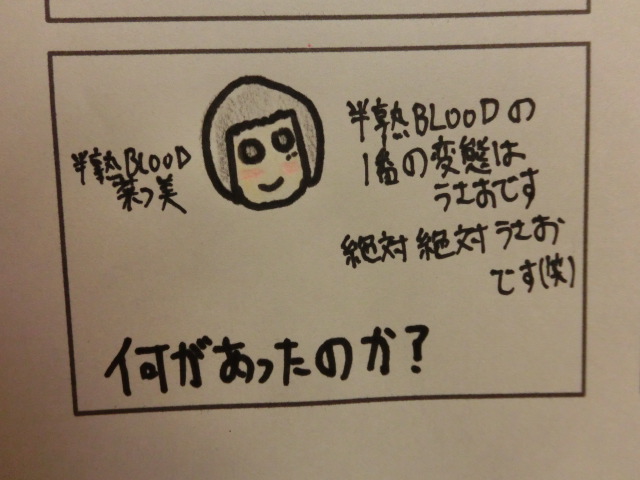 半熟BLOOD
菜つ美
半熟BLOODの
1番の変態は
うさおです
絶対絶対うさお
です(笑)
何があったのか?